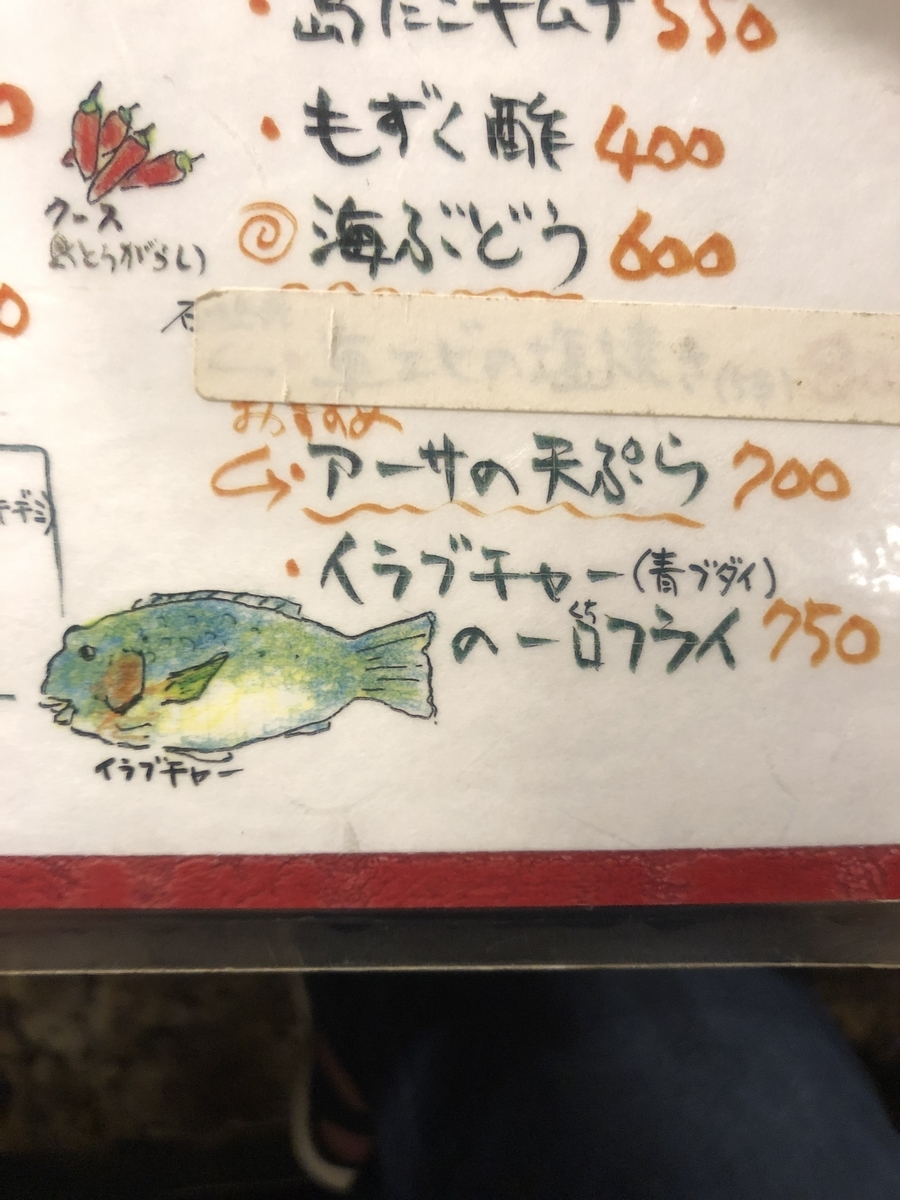 島だこキムチ 550
・もずく酢 400
クース
島とうがらし)
海ぶどう 600
石
おすすめ
・アーサの天ぷら 700
・イラブチャー(青ブダイ)
の一口フライ 750
くち
イラブチャー